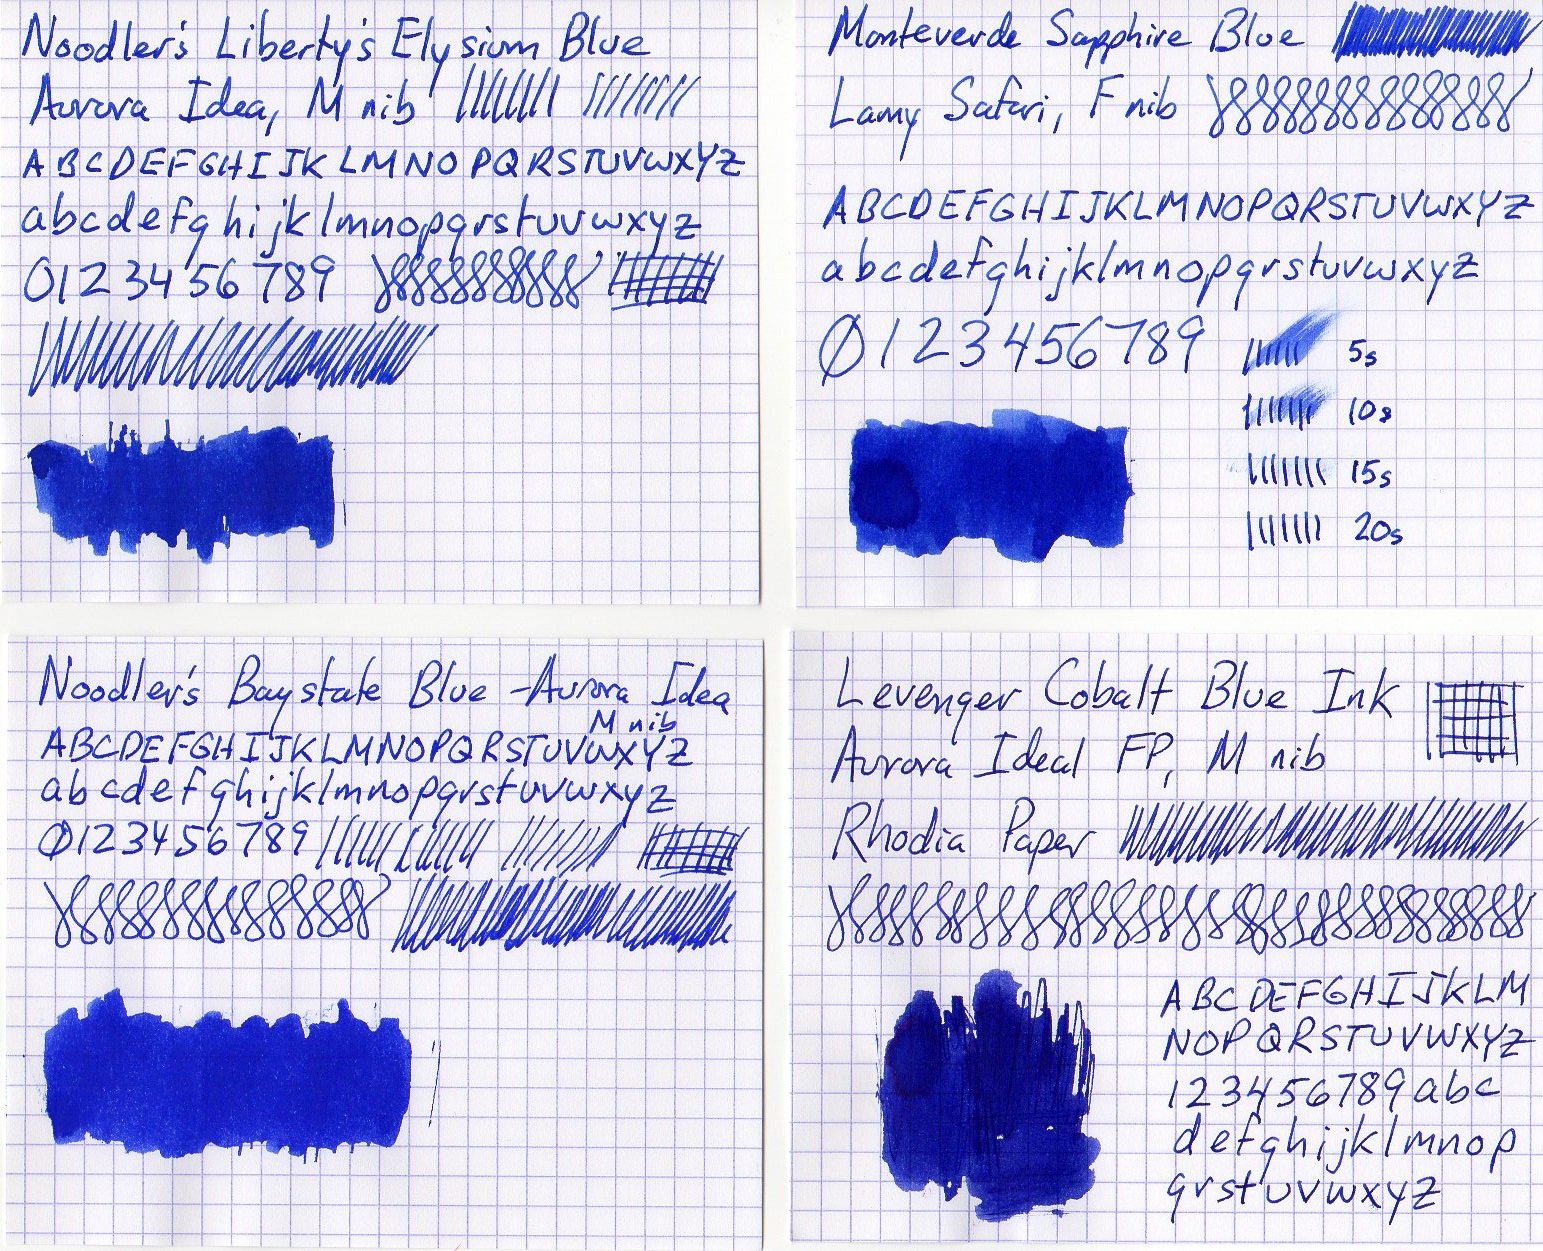 Noodler's Liberty's Elysium Blue
Aurora Idea, M nib
ABCDEFGHIJKLMNOPQRSTUVWXYZ
abcdefghijklmnopqrstuvwxyz
0123456789
Monteverde Sapphire Blue
Lamy Safari, F nib
ABCDEFGHIJKLMNOPQRSTUVWXYZ
abcdefghijklmnopqrstuvwxyz
0123456789
5s
10s
15s
20s
Noodler's Baystate Blue - Aurora Idea
M nib
ABCDEFGHIJKLMNOPQRSTUVWXYZ
abcdefghijklmnopqrstuvwxyz
0123456789
Levenger Cobalt Blue Ink
Aurora Ideal FP, M nib
Rhodia Paper
ABCDEFGHIJKLM
NOPQRSTUVWXYZ
123456789 abc
defghijklmnop
qrstuvwxyz